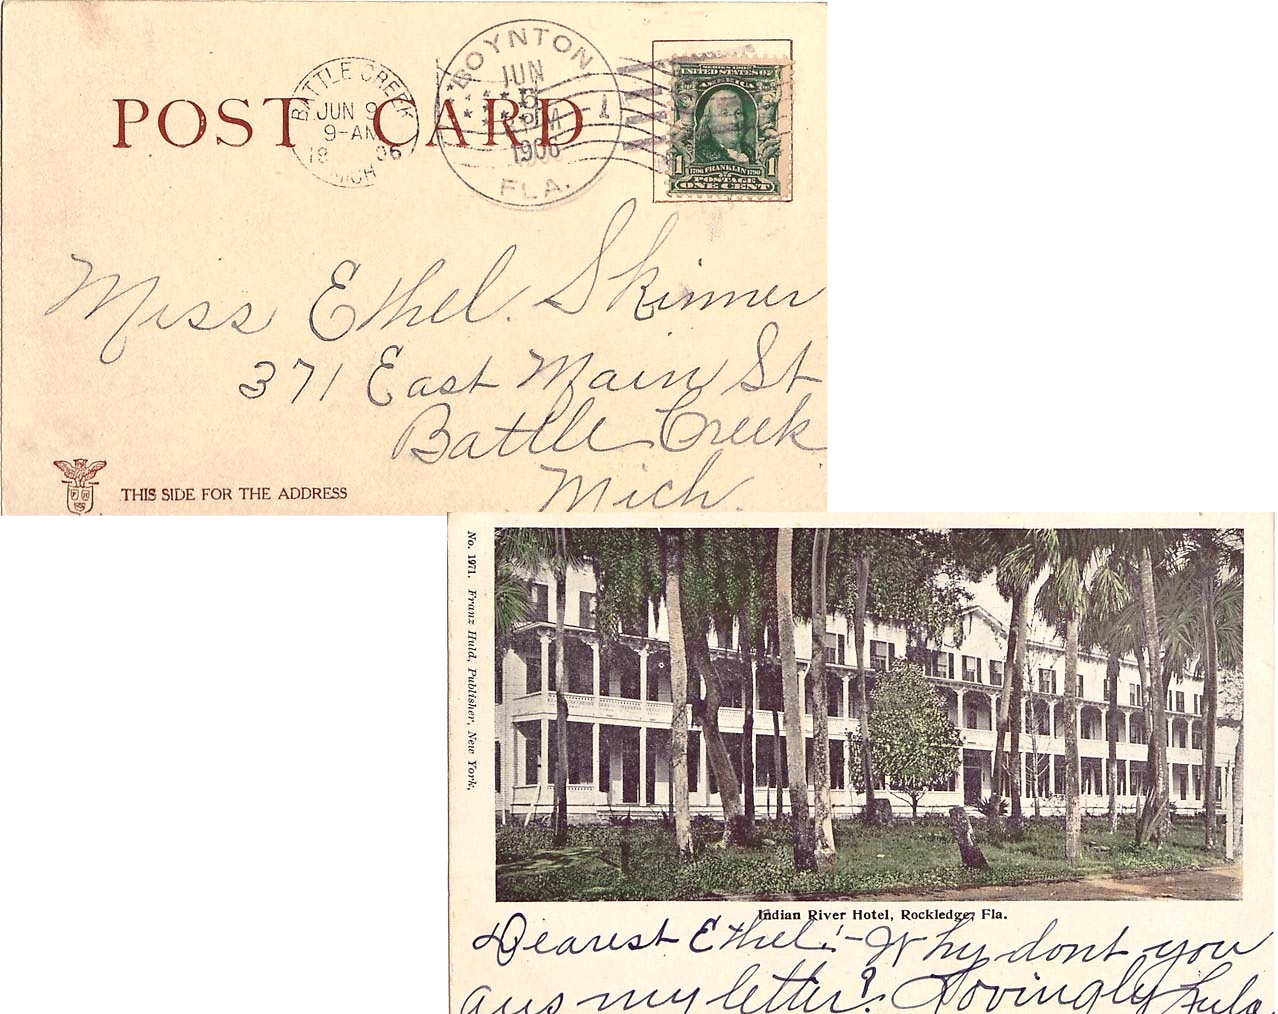 POST CARD
BATTLE CREEK
JUN 9
9-AM
19 06
MICH
BOYNTON,
JUN
5
PM
1906
FLA.
1
SERIES 1902
UNITED STATES OF
AMERICA
1 1706 FRANKLIN 1790 1
POSTAGE
ONE CENT
Miss Ethel. Skinner
371 East Main St
Battle Creek
Mich.
THIS SIDE FOR THE ADDRESS
No. 1971. Franz Huld, Publisher, New York,
Indian River Hotel, Rockledge, Fla.
Dearest Ethel:- Why dont you
ans my letter? Lovingly Lula